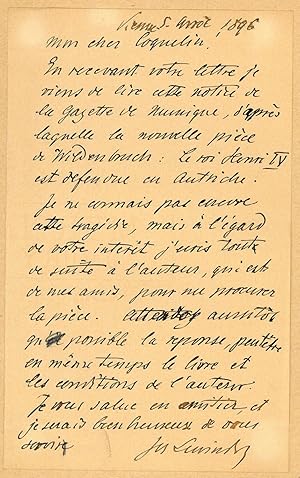 Vienne 5 1896
Mon cher Coquelin,
En recevant votre lettre je
viens de lire cette notice de
la Gazette de Munique, d'après
laquelle la nouvelle pièce
de Wildenbruch: Le roi Henri IV
est defendue en Autriche.
Je ne connais pas encore
cette tragédie, mais à l'égard
de votre interêt j'écris toute
de suite à l'auteur, qui est
de mes amis, pour me procurer
la pièce. Attendez aussitôt
que possible la reponse, peutêtre
en même temps le livre et
les conditions de l'auteur.
Je vous salue en amitier et
je serais bien heureux de vous
servire
Jos Lewinsky